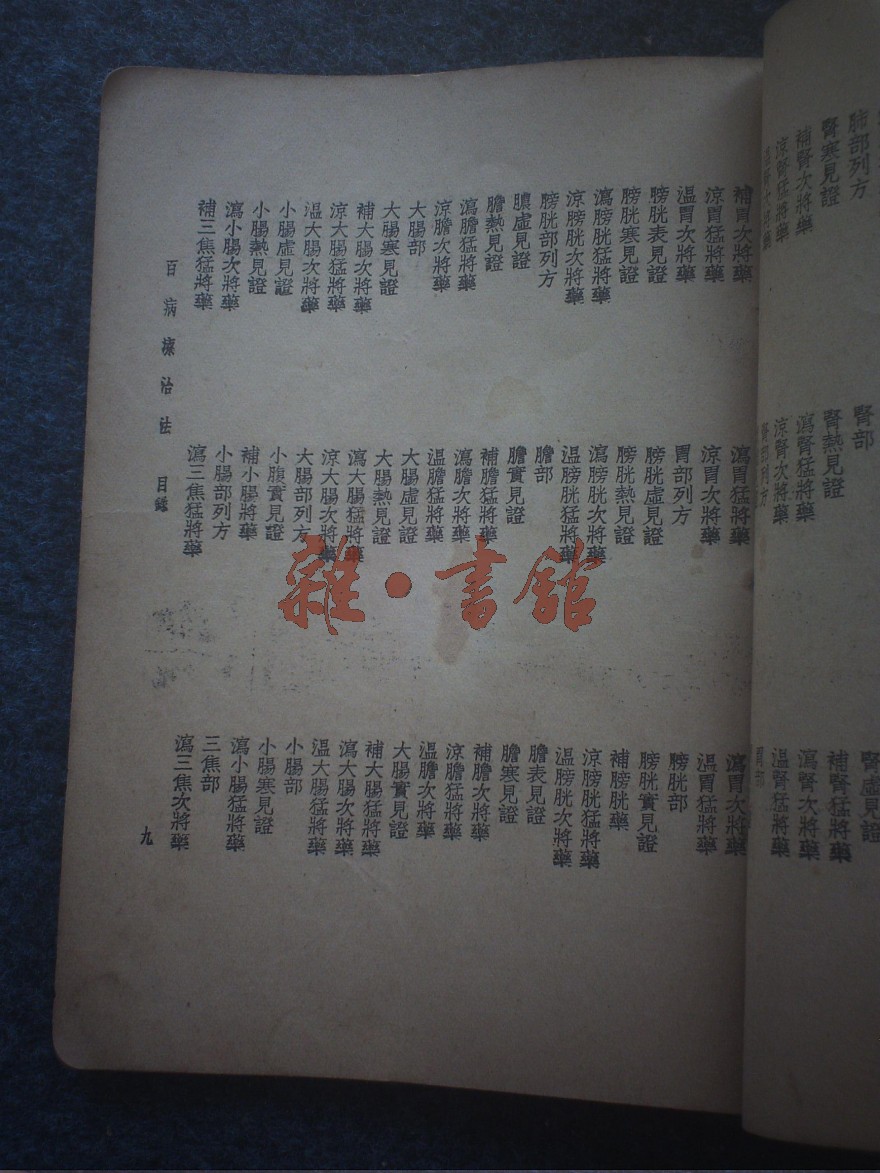 肺部列方
腎部
腎虛見證
腎寒見證
腎熱見證
補腎猛將藥
補腎次將藥
瀉腎猛將藥
瀉腎次將藥
涼腎猛將藥
涼腎次將藥
温腎猛將藥
温腎次將藥
腎部列方
胃部
補胃次將藥
瀉胃猛將藥
瀉胃次將藥
涼胃猛將藥
涼胃次將藥
温胃猛將藥
温胃次將藥
胃部列方
膀胱部
膀胱表見證
膀胱虛見證
膀胱實見證
膀胱寒見證
膀胱熱見證
補膀胱藥
瀉膀胱猛將藥
瀉膀胱次將藥
涼膀胱猛將藥
涼膀胱次將藥
温膀胱猛將藥
温膀胱次將藥
膀胱部列方
膽部
膽表見證
膿虛見證
膽實見證
膽寒見證
膽熱見證
補膽猛將藥
補膽次將藥
瀉膽猛將藥
瀉膽次將藥
涼膽猛將藥
涼膽次將藥
温膽猛將藥
温膽次將藥
大腸部
大腸虛見證
大腸實見證
大腸寒見證
大腸熱見證
補大腸猛將藥
補大腸次將藥
瀉大腸猛將藥
瀉大腸次將藥
涼大腸猛將藥
涼大腸次將藥
温大腸猛將藥
温大腸次將藥
大腸部列方
小腸部
小腸虛見證
小腹實見證
小腸寒見證
小腸熱見證
補小腸將藥
瀉小腸猛將藥
瀉小腸次將藥
小腸部列方
三焦部
補三焦猛將藥
瀉三焦猛將藥
瀉三焦次將藥
百病療治法 目錄 九
雜·書館